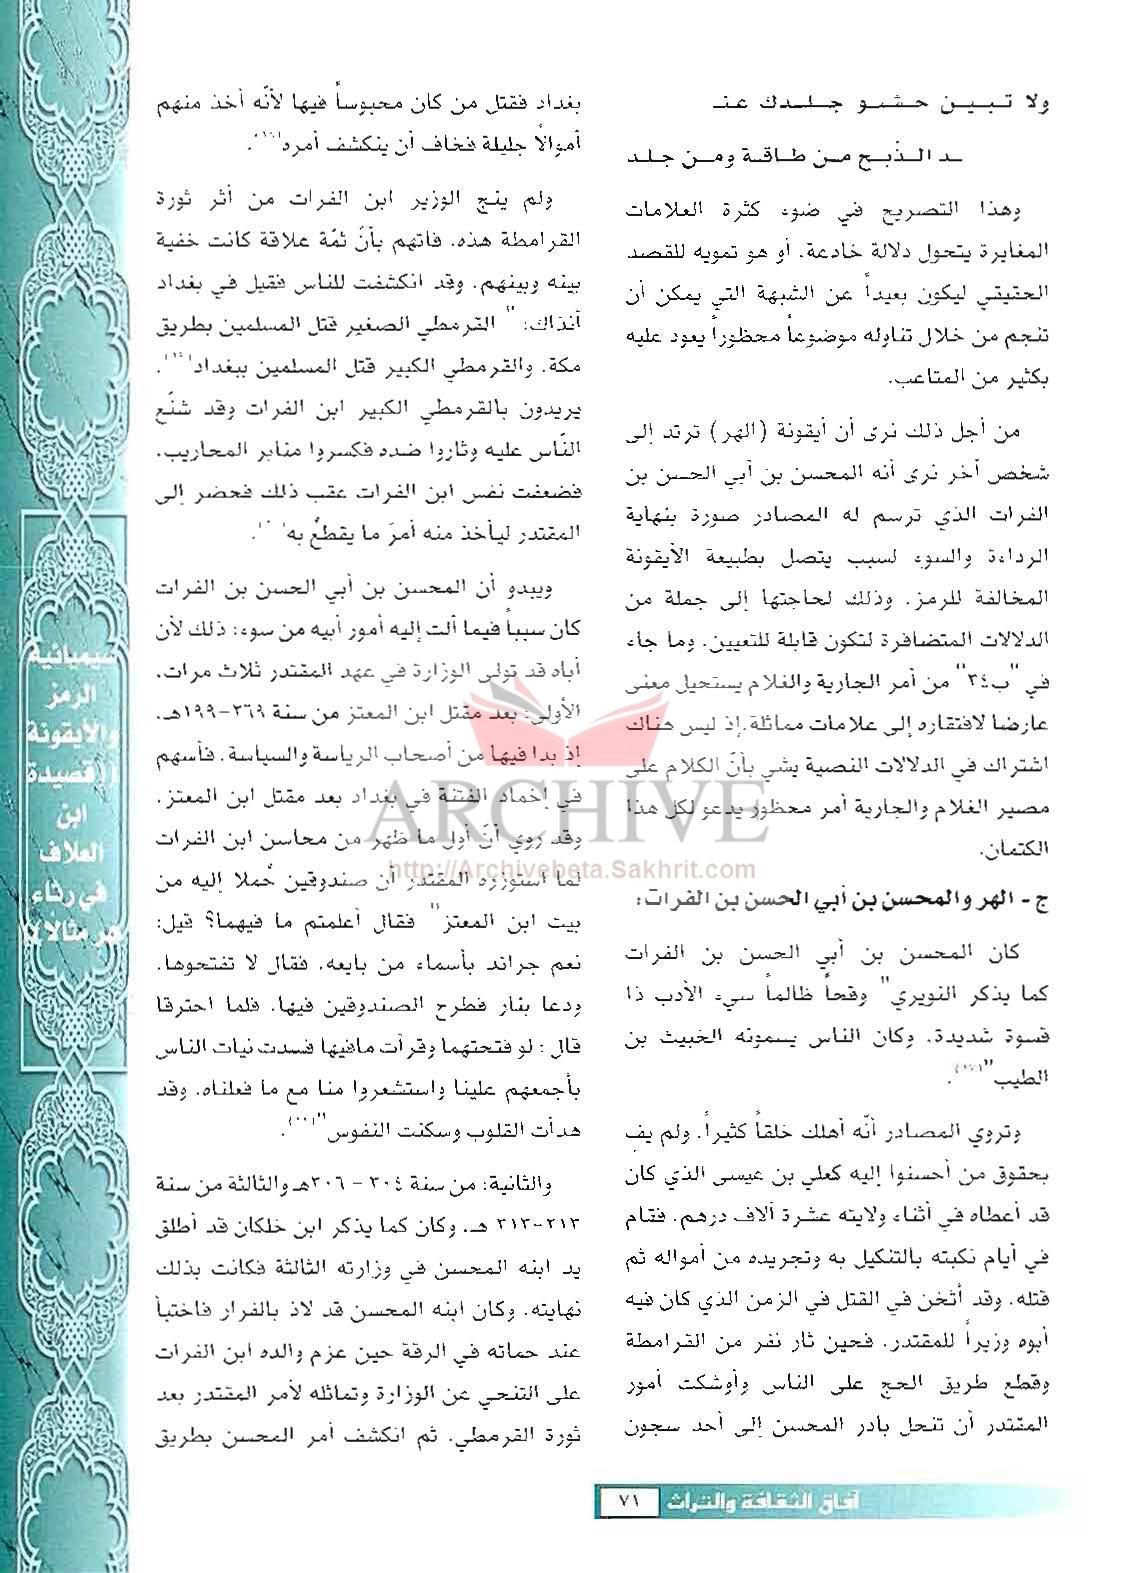 ولا تبين حشو جلدك عنـ
ـد الذّبح من طاقة ومن جلد
وهذا التصريح في ضوء كثرة العلامات
المغايرة يتحول دلالة خادعة، أو هو تمويه للقصد
الحقيقي ليكون بعيداً عن الشبهة التي يمكن أن
تنجم من خلال تناوله موضوعاً محظوراً يعود عليه
بكثير من المتاعب.
من أجل ذلك نرى أن أيقونة (الهر) ترتد إلى
شخص آخر نرى أنه المحسن بن أبي الحسن بن
الفرات الذي ترسم له المصادر صورة بنهاية
الرداءة والسوء لسبب يتصل بطبيعة الأيقونة
المخالفة للرمز، وذلك لحاجتها إلى جملة من
الدلالات المتضافرة لتكون قابلة للتعيين، وما جاء
في "ب٣٤" من أمر الجارية والغلام يستحيل معنى
عارضا لافتقاره إلى علامات مماثلة.إذ ليس هناك
اشتراك في الدلالات النصية يشي بأنّ الكلام على
مصير الغلام والجارية أمر محظور يدعو لكل هذا
الكتمان.
ج - الهر والمحسن بن أبي الحسن بن الفرات:
كان المحسن بن أبي الحسن بن الفرات
كما يذكر النويري" وقحاً ظالماً سيء الأدب ذا
قسوة شديدة، وكان الناس يسمونه الخبيث بن
الطيب".
وتروي المصادر أنّه أهلك خلقاً كثيراً، ولم يف
بحقوق من أحسنوا إليه كعلي بن عيسى الذي كان
قد أعطاه في أثناء ولايته عشرة آلاف درهم، فقام
في أيام نكبته بالتنكيل به وتجريده من أمواله ثم
قتله، وقد أثخن في القتل في الزمن الذي كان فيه
أبوه وزيراً للمقتدر، فحين ثار نفر من القرامطة
وقطع طريق الحج على الناس وأوشكت أمور
المقتدر أن تنحل بادر المحسن إلى أحد سجون
بغداد فقتل من كان محبوساً فيها لأنّه أخذ منهم
أموالاً جليلة فخاف أن ينكشف أمره.
ولم ينج الوزير ابن الفرات من أثر ثورة
القرامطة هذه، فاتهم بأنّ ثمّة علاقة كانت خفية
بينه وبينهم، وقد انكشفت للناس فقيل في بغداد
آنذاك: " القرمطي الصغير قتل المسلمين بطريق
مكة، والقرمطي الكبير قتل المسلمين ببغداد".
يريدون بالقرمطي الكبير ابن الفرات وقد شنّع
النّاس عليه وثاروا ضده فكسروا منابر المحاريب،
فضعفت نفس ابن الفرات عقب ذلك فحضر إلى
المقتدر ليأخذ منه أمرَ ما يقطعُ به.
ويبدو أن المحسن بن أبي الحسن بن الفرات
كان سبباً فيما آلت إليه أمور أبيه من سوء؛ ذلك لأن
أباه قد تولى الوزارة في عهد المقتدر ثلاث مرات،
الأولى: بعد مقتل ابن المعتز من سنة ٣٦٩-١٩٩هـ،
إذ بدا فيها من أصحاب الرياسة والسياسة، فأسهم
في إخماد الفتنة في بغداد بعد مقتل ابن المعتز،
وقد روي أنّ أول ما ظهر من محاسن ابن الفرات
لما استوزره المقتدر أن صندوقين حُملا إليه من
بيت ابن المعتز" فقال أعلمتم ما فيهما؟ قيل:
نعم جرائد بأسماء من بايعه، فقال لا تفتحوها،
ودعا بنار فطرح الصندوقين فيها، فلما احترقا
قال : لو فتحتهما وقرأت مافيها فسدت نيات الناس
بأجمعهم علينا واستشعروا منا مع ما فعلناه، وقد
هدأت القلوب وسكنت النفوس".
والثانية: من سنة ٣٠٤ - ٣٠٦هـ والثالثة من سنة
٢١٣-٣١٣ هـ، وكان كما يذكر ابن خلكان قد أطلق
يد ابنه المحسن في وزارته الثالثة فكانت بذلك
نهايته، وكان ابنه المحسن قد لاذ بالفرار فاختبأ
عند حماته في الرقة حين عزم والده ابن الفرات
على التنحي عن الوزارة وتماثله لأمر المقتدر بعد
ثورة القرمطي، ثم انكشف أمر المحسن بطريق
سيميائية
الرمز
والأيقونة
قصيدة
ابن
العلاف
في رثاء
هر مثالا
ARCHIVE
http://Archivebeta.Sakhrit.com
آفاق الثقافة والتراث ٧١